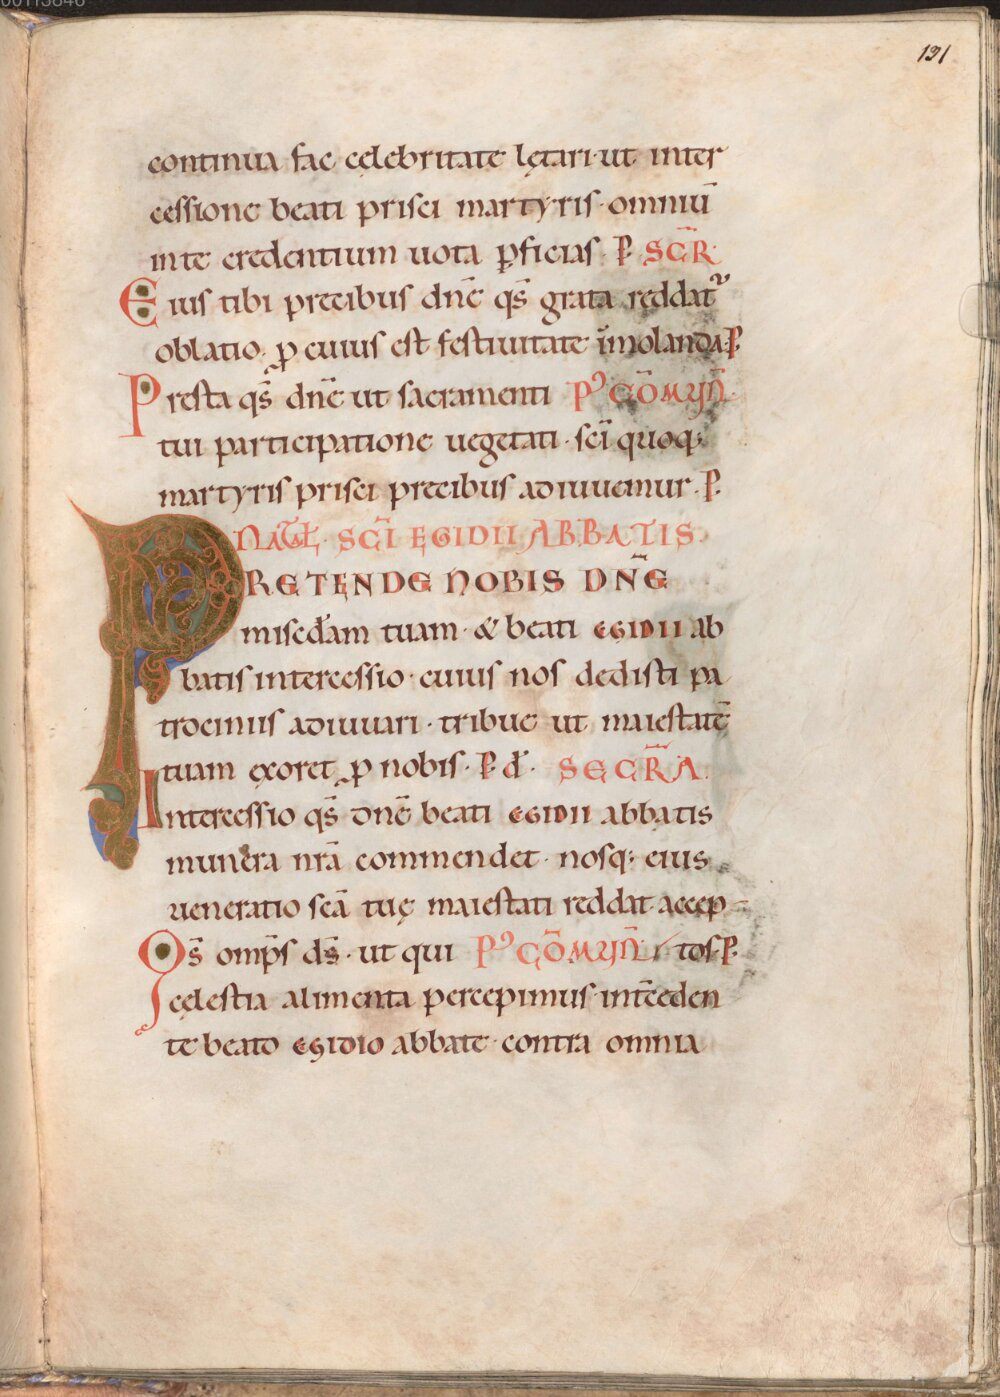 00113846
131
continua fac cęlebritate lętari · ut inter
cessione beati prisci martyris · omniū
in te credentium uota ꝑficias · P̲. SEC̄R·
Eius tibi precibus dn̄e qs̄ grata reddat᷑
oblatio · ꝓ cuius est festiuitate īmolanda · P̲
Presta qs̄ dn̄e ut sacramenti Pꝰ CŌMUN̄·
tui participatione uegetati · sc̄i quoq;
martyris prisci precibus adiuuemur · P̲.
NAT̄L · SC̄I EGIDII ABBATIS·
PRETENDE NOBIS DN̄E
misc̄dam tuam · & beati EGIDII ab
batis intercessio · cuius nos dedisti pa
trociniis adiuuari · tribue ut maiestatē
tuam exoret ꝓ nobis · P̲. d̄ · SECR̄A·
Intercessio qs̄ dn̄e beati EGIDII abbatis
munera nr̄a commendet · nosq; eius
ueneratio sc̄a tuę maiestati reddat accep-
Qs̄ omp̄s ds̄ · ut qui Pꝰ CŌMUN̄ · / tos · P̲.
cęlestia alimenta percepimus · int̄ceden
te beato EGIDIO abbate · contra omnia